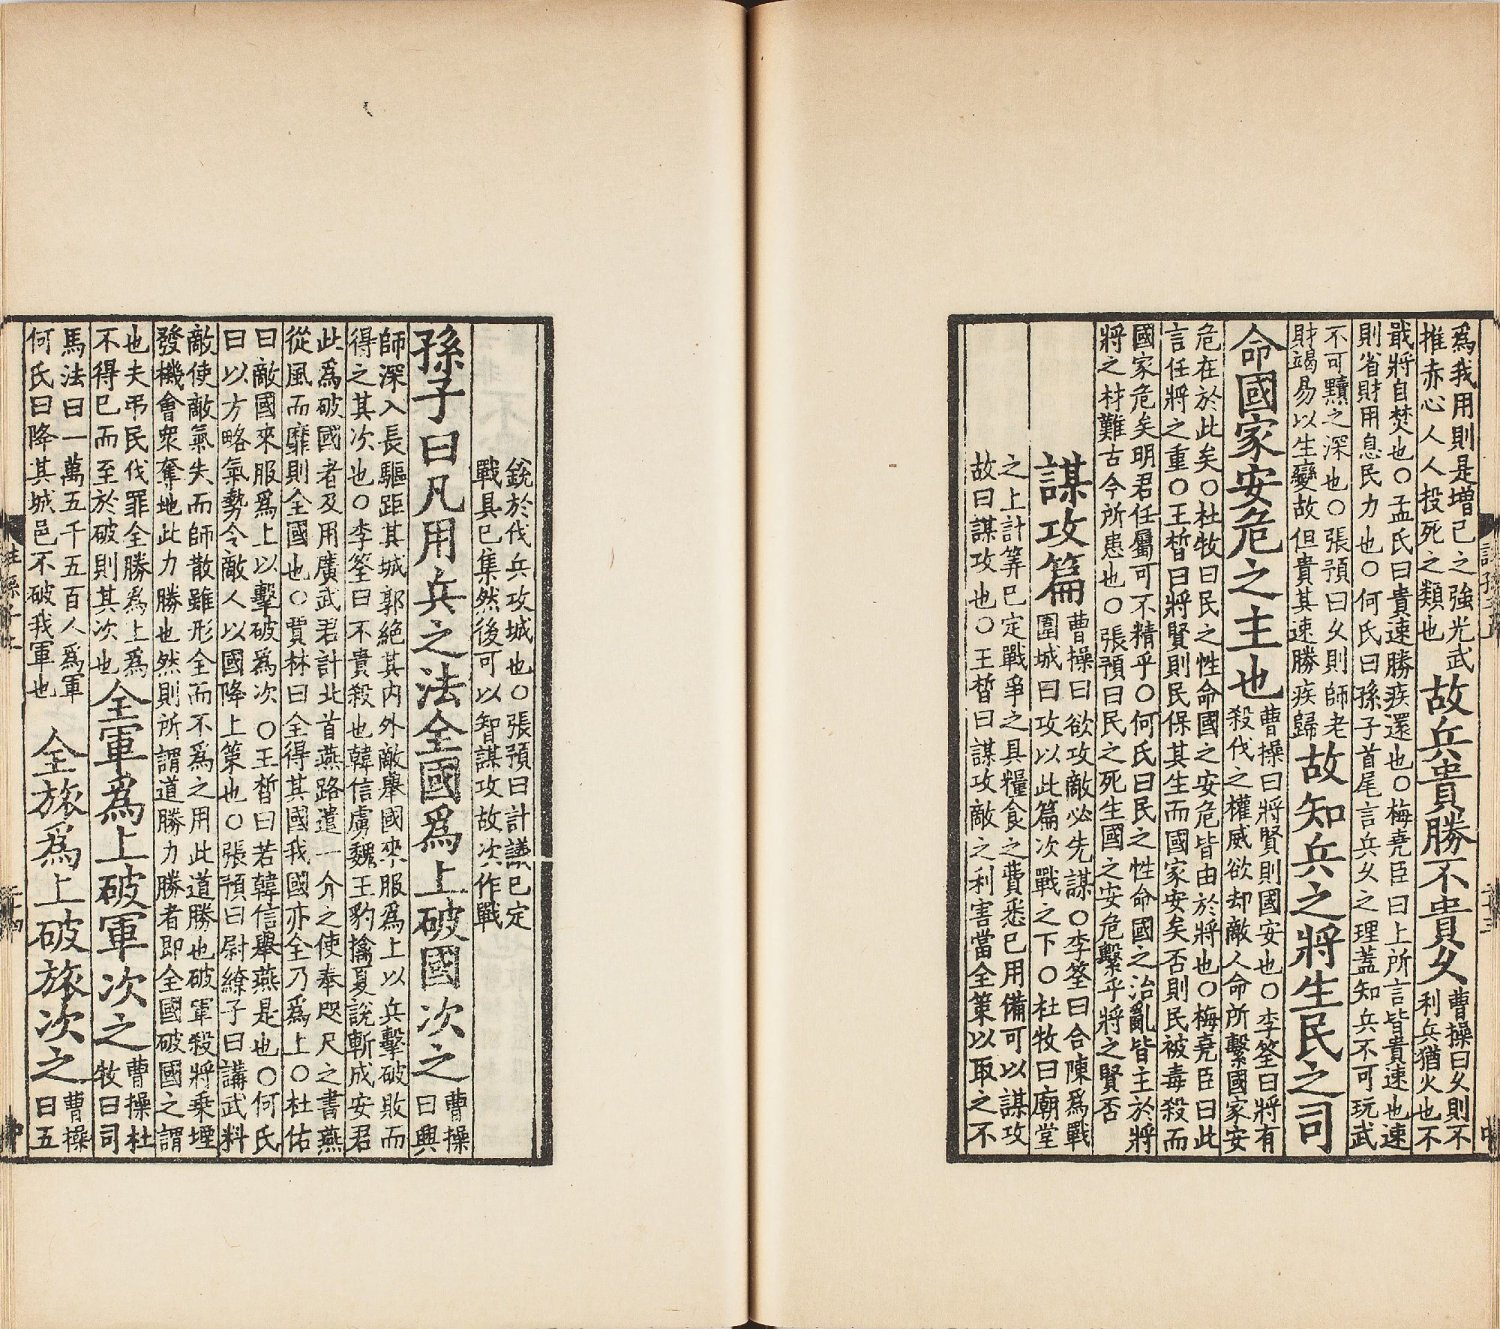 為我用則是増已之強光武
推赤心人人投死之類也
故兵貴勝不貴久
曹操曰久則不
利兵猶火也不
戢將自焚也○孟氏曰貴速勝疾還也○梅堯臣曰上所言皆貴速也速
則省財用息民力也○何氏曰孫子首尾言兵久之理蓋知兵不可玩武
不可黷之深也○張預曰久則師老
財竭易以生變故但貴其速勝疾歸
故知兵之將生民之司
命國家安危之主也
曹操曰將賢則國安也○李筌曰將有
殺伐之權威欲却敵人命所繫國家安
危在於此矣○杜牧曰民之性命國之安危皆由於將也○梅堯臣曰此
言任將之重○王晳曰將賢則民保其生而國家安矣否則民被毒殺而
國家危矣明君任屬可不精乎○何氏曰民之性命國之治亂皆主於將
將之材難古今所患也○張預曰民之死生國之安危繫乎將之賢否
謀攻篇
曹操曰欲攻敵必先謀○李筌曰合陳為戰
圍城曰攻以此篇次戰之下○杜牧曰廟堂
之上計筭已定戰爭之具糧食之費悉已用備可以謀攻
故曰謀攻也○王晳曰謀攻敵之利害當全策以取之不
銳於伐兵攻城也○張預曰計議已定
戰具已集然後可以智謀攻故次作戰
孫子曰凡用兵之法全國爲上破國次之
曹操
曰興
師深入長驅距其城郭絕其内外敵舉國來服爲上以兵擊破敗而
得之其次也○李筌曰不貴殺也韓信虜魏王豹擒夏說斬成安君
此爲破國者及用廣武君計北首燕路遣一介之使奉咫尺之書燕
從風而靡則全國也○賈林曰全得其國我國亦全乃爲上○杜佑
曰敵國來服爲上以擊破爲次○王晳曰若韓信舉燕是也○何氏
曰以方略氣勢令敵人以國降上策也○張預曰尉繚子曰講武料
敵使敵氣失而師散雖形全而不爲之用此道勝也破軍殺將乗堙
發機會衆奪地此力勝也然則所謂道勝力勝者即全國破國之謂
也夫弔民伐罪全勝爲上爲
不得已而至於破則其次也
全軍爲上破軍次之
曹操杜
牧曰司
馬法曰一萬五千五百人爲軍
何氏曰降其城邑不破我軍也
全旅爲上破旅次之
曹操
曰五